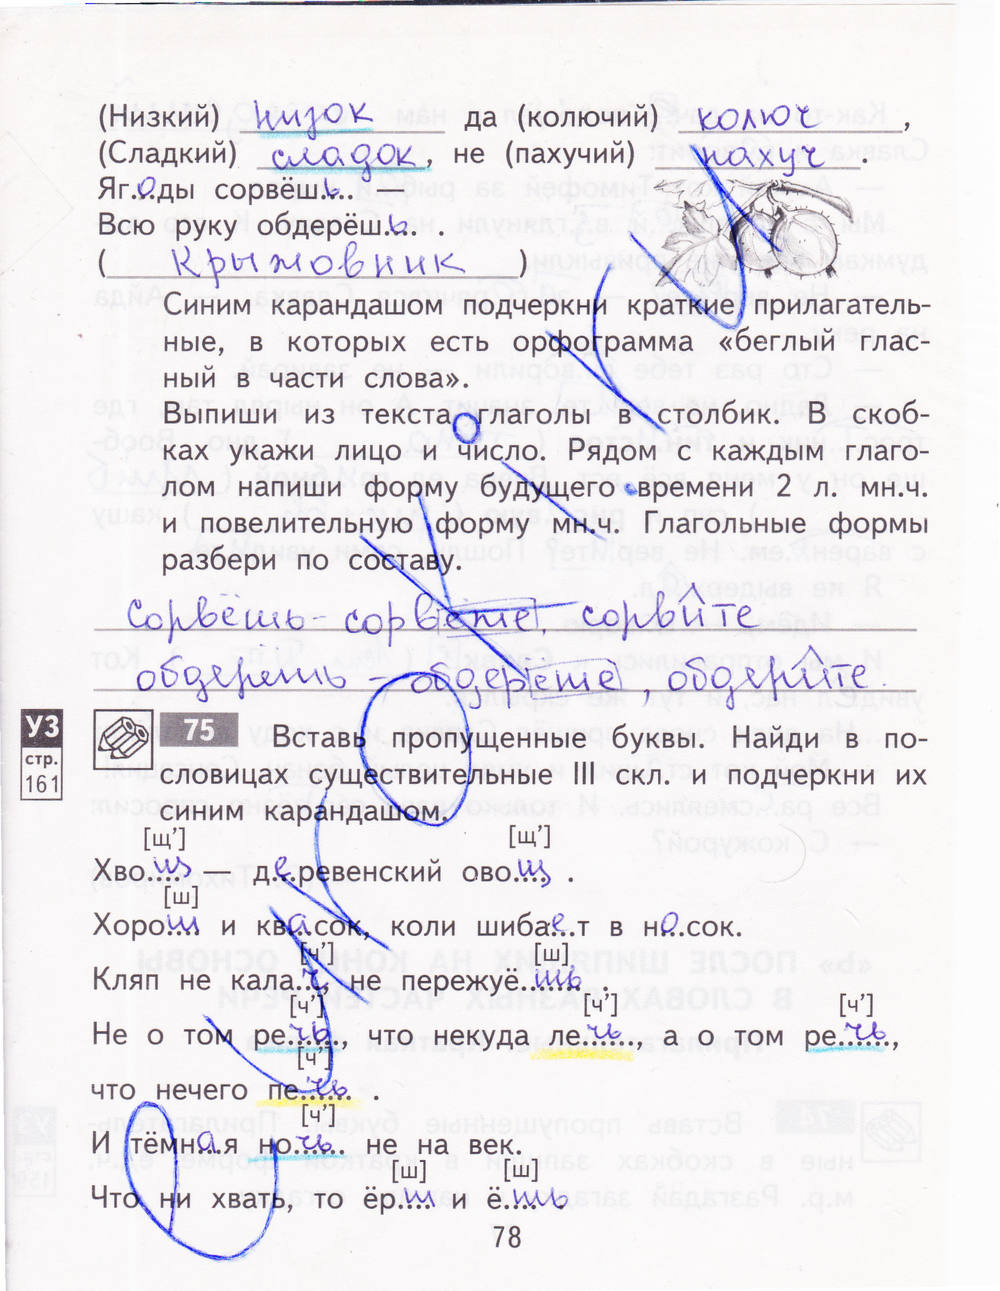 (Низкий) низок да (колючий) колюч,
(Сладкий) сладок, не (пахучий) пахуч.
Яг.о.ды сорвёш.ь.
Всю руку обдерёш.ь. .
( Крыжовник )
Синим карандашом подчеркни краткие прилагатель-
ные, в которых есть орфограмма «беглый глас-
ный в части слова».
Выпиши из текста глаголы в столбик. В скоб-
ках укажи лицо и число. Рядом с каждым глаго-
лом напиши форму будущего времени 2 л. мн.ч.
и повелительную форму мн.ч. Глагольные формы
разбери по составу.
Сорвёшь - сорвёте, сорвите
обдерёшь - обдерёте, обдерите.
УЗ
стр.
161
75 Вставь пропущенные буквы. Найди в по-
словицах существительные III скл. и подчеркни их
синим карандашом.
[щ'] [щ']
Хво..щ.. — д.е.ревенский ово..щ.. .
[ш]
Хоро..ш.. и кв.а.сок, коли шиба.е.т в н.о.сок.
[ч'] [ш]
Кляп не кала..ч.., не пережуё..шь.. .
[ч'] [ч'] [ч']
Не о том ре..чь.., что некуда ле..чь.., а о том ре..чь..,
[ч']
что нечего пе..чь.. .
[ч']
И тёмн.а.я но..чь.. не на век.
[ш] [ш]
Что ни хвать, то ёр..ш.. и ё..шь.. .
78